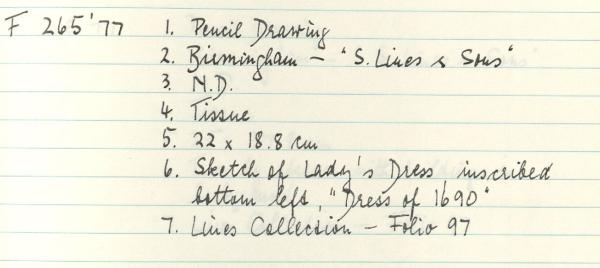 F 265'77 1. Pencil Drawing
2. Birmingham - "S. Lines & Sons"
3. N.D.
4. Tissue
5. 22 x 18.8 cm
6. Sketch of Lady's Dress inscribed
bottom left, "Dress of 1690"
7. Lines Collection - Folio 97